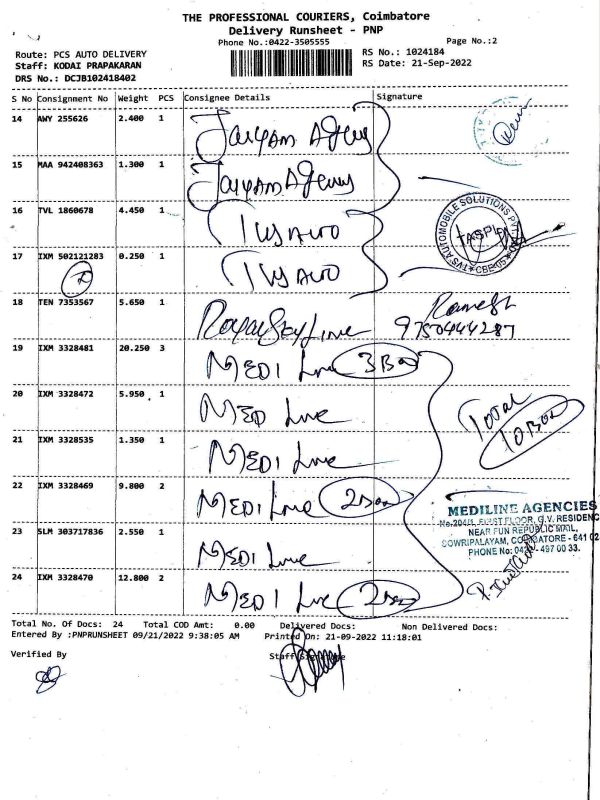 THE PROFESSIONAL COURIERS, Coimbatore
Delivery Runsheet - PNP
Phone No.:0422-3505555
Page No.:2
Route: PCS AUTO DELIVERY
RS No.: 1024184
Staff: KODAI PRAPAKARAN
RS Date: 21-Sep-2022
DRS No.: DCJB102418402
S No Consignment No Weight PCS Consignee Details Signature
14 AWY 255626 2.400 1
15 MAA 942408363 1.300 1
16 TVL 1860678 4.450 1 TVS AUTO
TVS AUTOMOBILE SOLUTIONS PVT
TASPL
CBE-05
17 IXM 502121283 0.250 1 TVS AUTO
18 TEN 7353567 5.650 1 Royal Sky Line Ramesh
9750444287
19 IXM 3328481 20.250 3 MEDI Line 3 Box
20 IXM 3328472 5.950 1 MEDI Line
Total
10 Box
21 IXM 3328535 1.350 1 MEDI Line
22 IXM 3328469 9.800 2 MEDI Line 2 Box
MEDILINE AGENCIES
No.204/1, FIRST FLOOR, G.V. RESIDENC
NEAR FUN REPUBLIC MALL,
SOWRIPALAYAM, COIMBATORE - 641 02
PHONE No: 0422 - 497 00 33.
23 SLM 303717836 2.550 1 MEDI Line
24 IXM 3328470 12.800 2 MEDI Line 2 Box
Total No. Of Docs: 24 Total COD Amt: 0.00 Delivered Docs: Non Delivered Docs:
Entered By :PNPRUNSHEET 09/21/2022 9:38:05 AM Printed On: 21-09-2022 11:18:01
Verified By Staff Signature